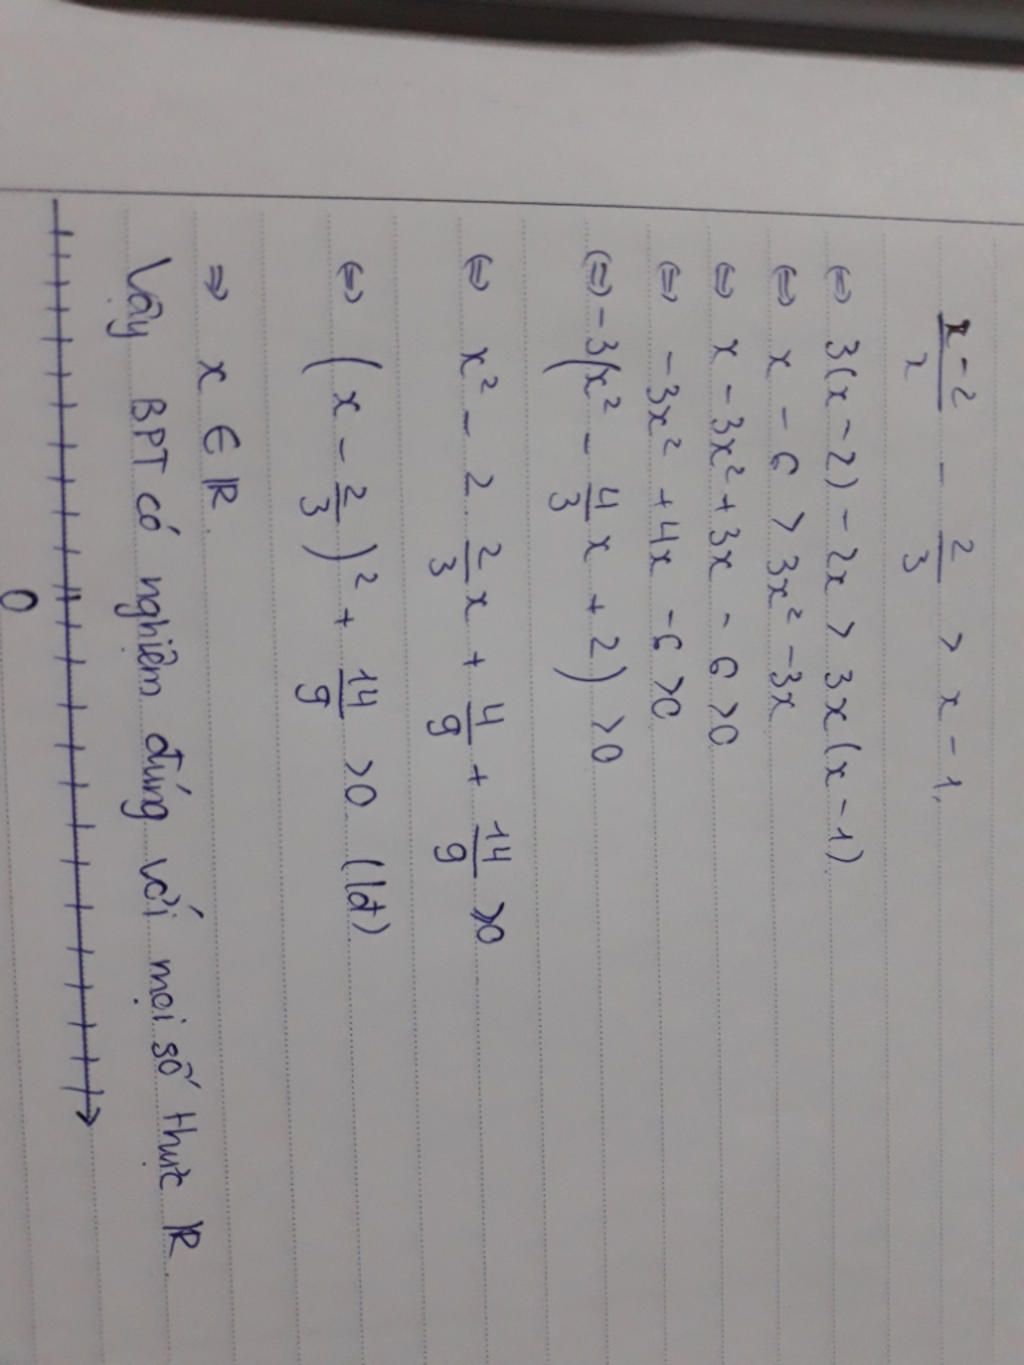 x-2/x - 2/3 > x - 1.
⇔ 3(x - 2) - 2x > 3x(x - 1)
⇔ x - 6 > 3x² - 3x
⇔ x - 3x² + 3x - 6 > 0
⇔ -3x² + 4x - 6 > 0
⇔ -3(x² - 4/3 x + 2) > 0
⇔ x² - 2 . 2/3 x + 4/9 + 14/9 > 0
⇔ (x - 2/3)² + 14/9 > 0 (lđ)
⇒ x ∈ R.
Vậy BPT có nghiệm đúng với mọi số thực R.
0